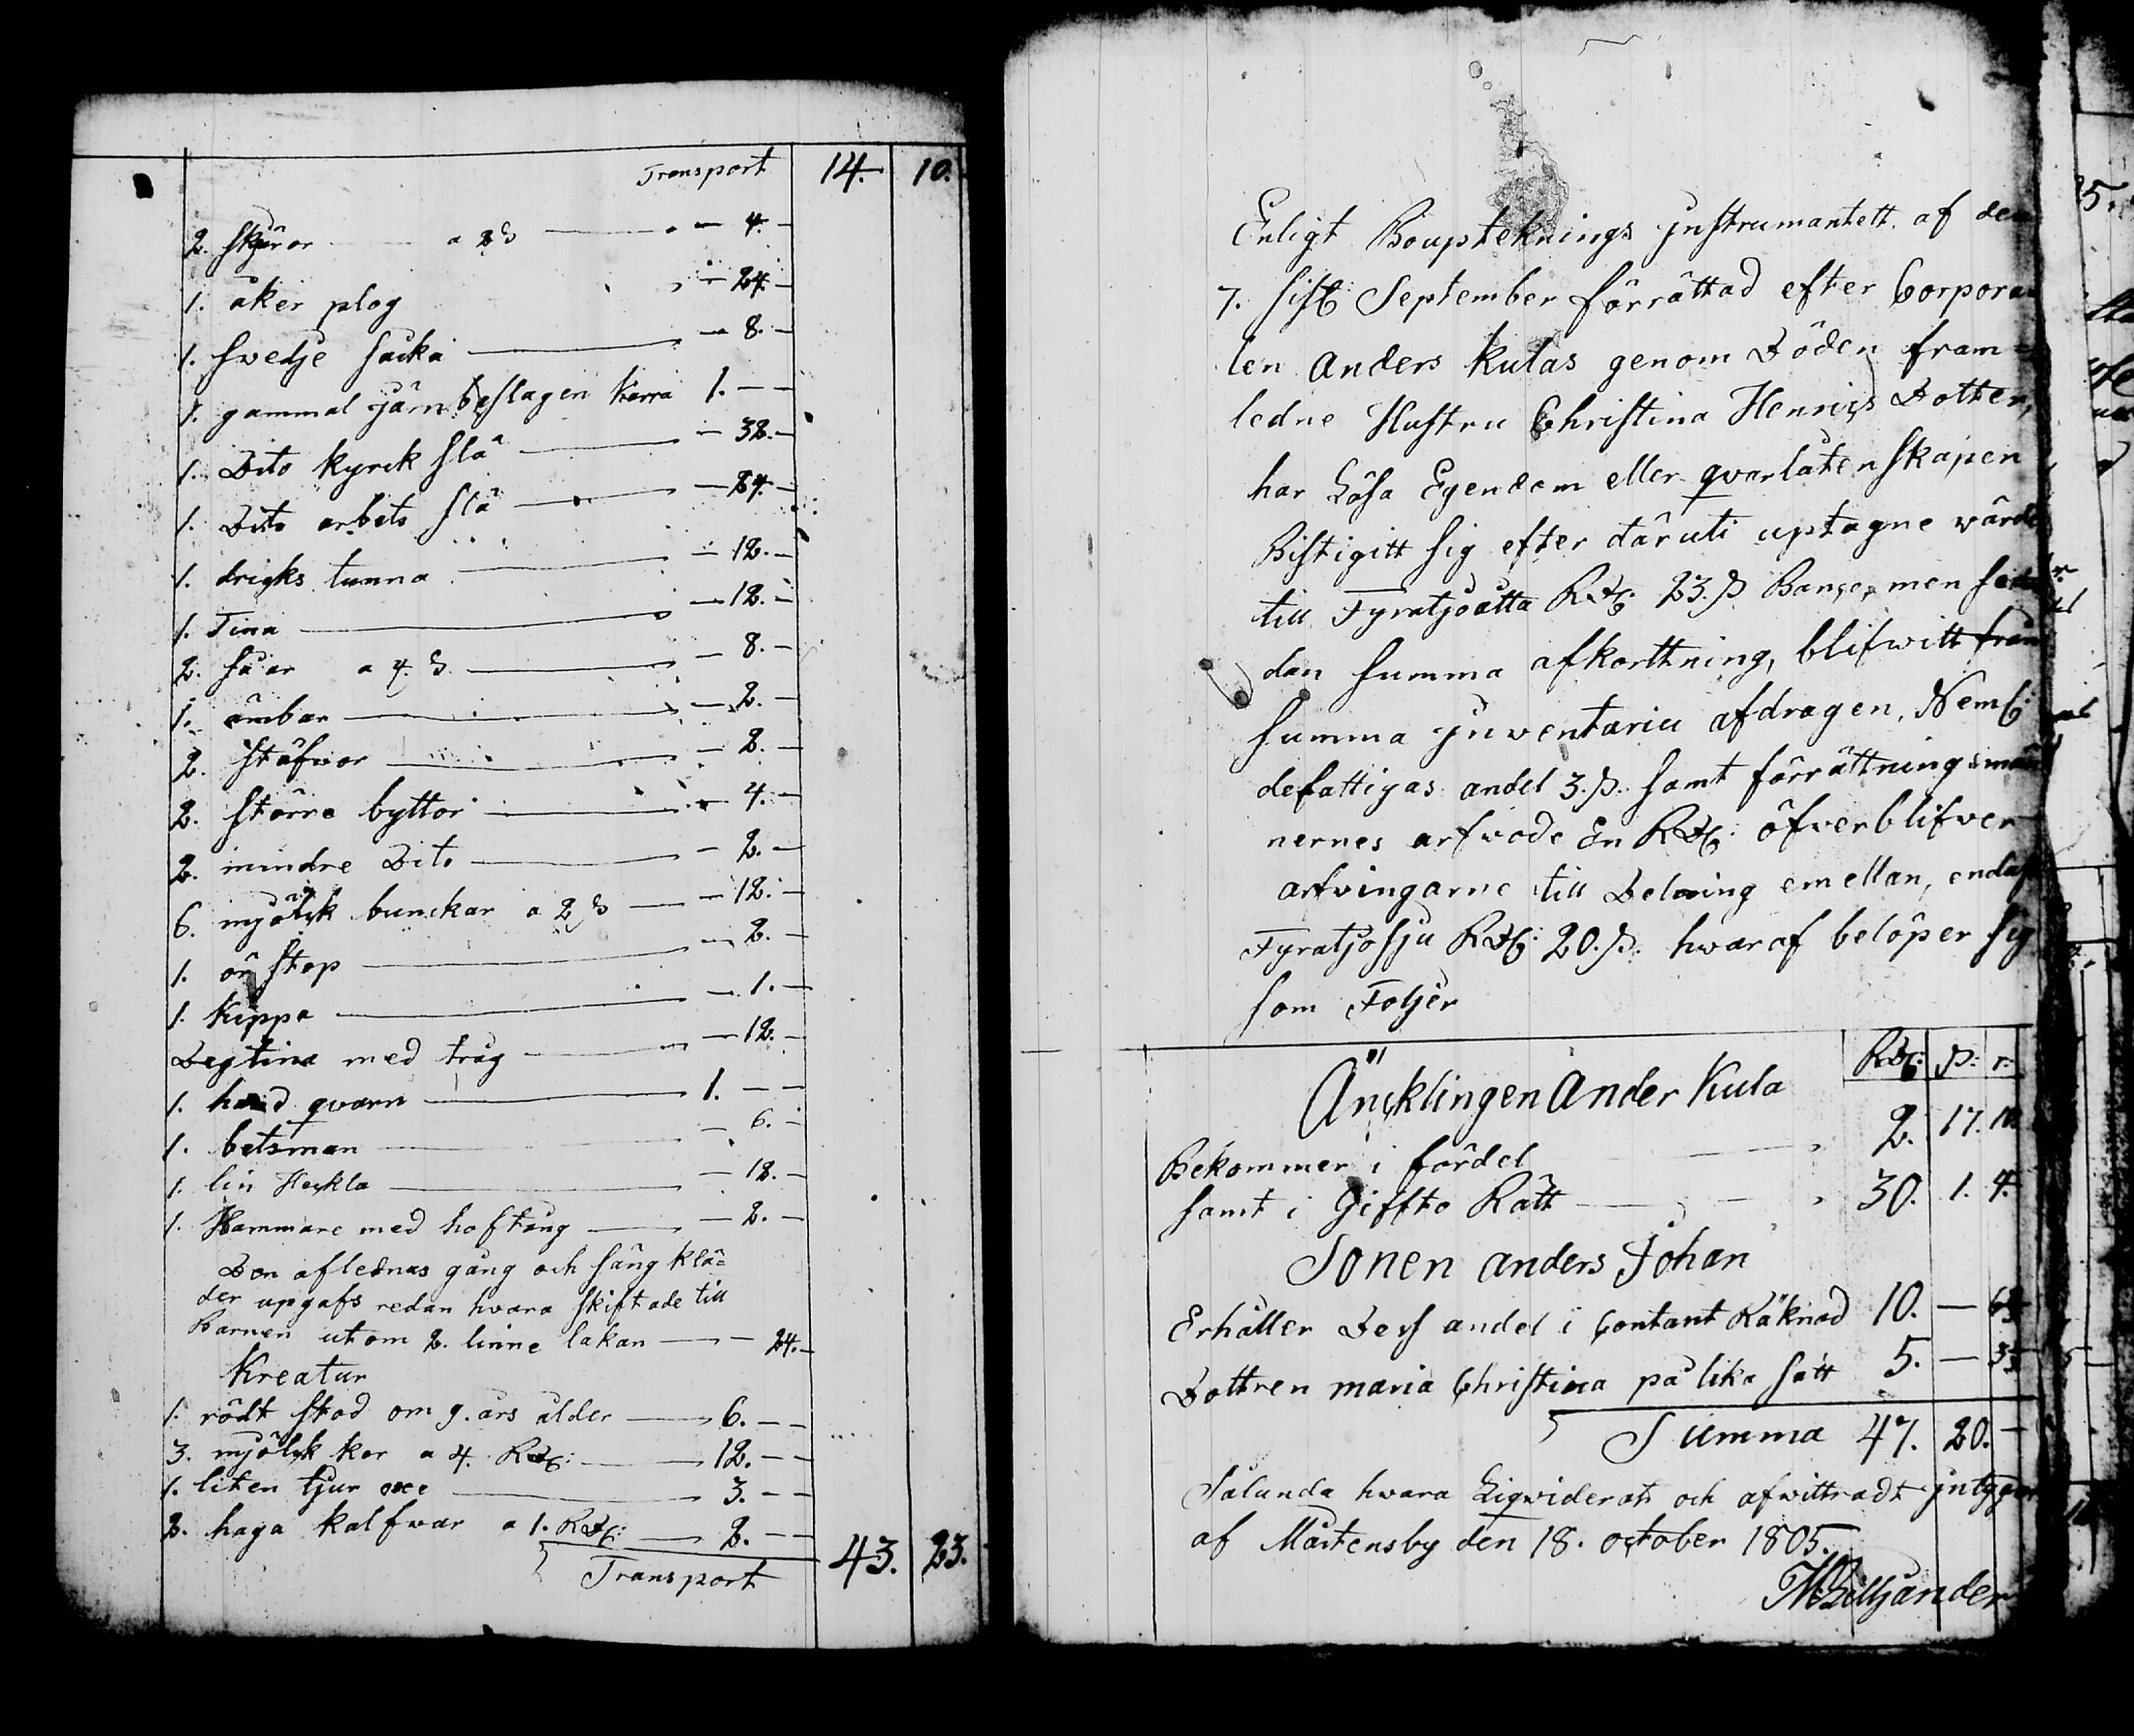 Transport 14. 10.
2. skäror a 2 ß — 4. —
1. åker plog — 24. —
1. swedje harka — 8. —
1. gammal järnbeslagen kärra 1. — —
1. Dito kyrck slä — 32. —
1. Dito arbets slä — 24. —
1. dricks tunna — 12. —
1. Tina — 12. —
2. såar a 4. ß — 8. —
1. ämbar — 2. —
2. stäfwor — 2. —
2. större byttor — 4. —
2. mindre Dito — 2. —
6. mjölck bunckar a 2 ß — 12. —
1. ön stop — 2. —
1. Kippa — 1. —
Degtina med tråg — 12. —
1. hand qwarn 1. — —
1. betsman — 6. —
1. lin Heckla — 12. —
1. Hammare med hoftång — 2. —
Den aflednas gång och säng klä=
der upgafs redan hwara skiftade till
Barnen utom 2. linne lakan — 24. —
Kreatur
1. rödt stod om 9. års ålder 6. — —
3. mjölck kor a 4. Rdr: 12. — —
1. liten tjur oxe 3. — —
2. haga kalfwar a 1. Rdr: 2. — —
Transport 43. 23.
Enligt Boupteknings jnstrumantett af den
7. sist September förrättad efter Corpora
len Anders Kulas genom Döden fram=
ledne Hustru Christina Henrics Dotter,
har Lösa Egendom eller qwarlåtenskapen
Bistigitt sig efter däruti uptagne wärde
till Fyratjoåtta Rdr: 23. ß Banco, men
dan summa afkorttning, blifwitt från
summa jnwentariu afdragen, Neml:
defattigas andel 3. ß. samt förrättningsmän
nernes arfwode En Rdr: öfwerblifwer
arfvingarne till Delning emellan, endast
Fyratjosju Rdr: 20. ß. hwaraf belöper sig
som Foljer
Rdr: ß: r:
Äncklingen Ander Kula
Bekommer i fördel 2. 17. 10.
samt i Giffto Rätt 30. 1. 4.
Sonen Anders Johan
Erhåller Dess andel i Contant Räknad 10. —
Dottren Maria Christina på lika sätt 5. —
Summa 47. 20. —
Sålunda hwara Liqwiderat och afwittradt jntygar
af Mårtensby den 18. october 1805.
Lilljander